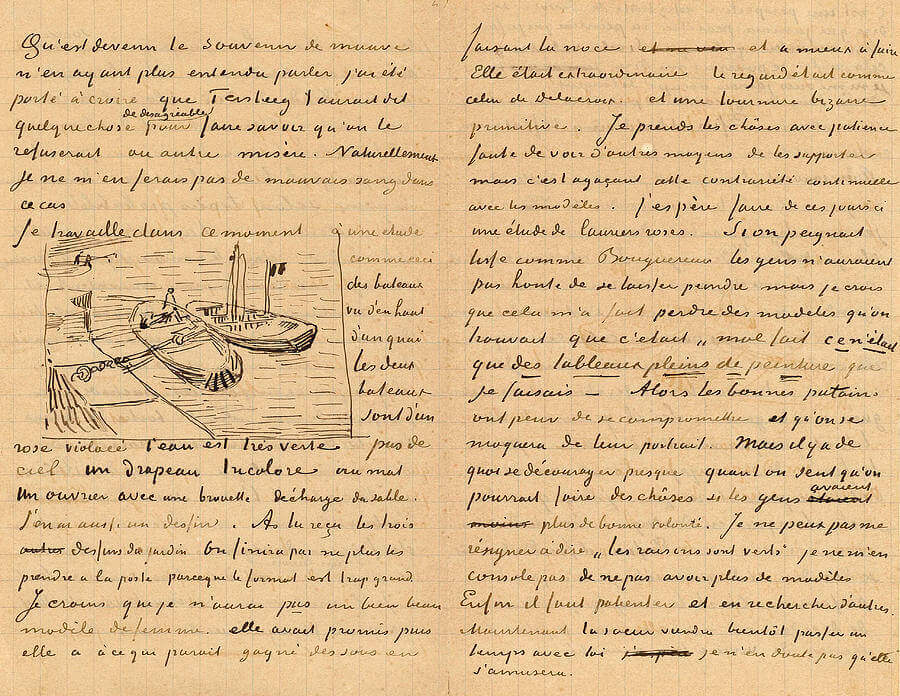 Qu'est devenu le souvenir de mauve
n'en ayant plus entendu parler j'ai été
porté à croire que Tersteeg t'aurait dit
quelque chose de desagréable pour faire savoir qu'on le
refuserait ou autre misère. Naturellement
je ne m'en ferais pas de mauvais sang dans
ce cas
Je travaille dans ce moment à une étude
comme ceci
des bateaux
vu d'en haut
d'un quai
les deux
bateaux
sont d'un
rose violacé l'eau est très verte pas de
ciel un drapeau tricolore au mat
Un ouvrier avec une brouette décharge du sable.
J'en ai aussi un dessin. As tu reçu les trois
autres dessins du jardin On finira par ne plus les
prendre a la poste parceque le format est trop grand.
Je crains que je n'aurai pas un bien beau
modèle de femme. elle avait promis puis
elle a à ce que parait gagné des sous en
faisant la noce et a mieux à faire
Elle était extraordinaire le regard était comme
celui de delacroix. et une tournure bizarre
primitive. Je prends les chôses avec patience
faute de voir d'autres moyens de les supporter
mais c'est agaçant cette contrariété continuelle
avec les modèles. J'espère faire de ces jours ci
une étude de lauriers roses. Si on peignait
lisse comme Bouguereau les gens n'auraient
pas honte de se laisser peindre mais je crois
que cela m'a fait perdre des modèles qu'on
trouvait que c'etait „mal fait ce n'était
que des tableaux pleins de peinture que
je faisais – Alors les bonnes putains
ont peur de se compromettre et qu'on se
moquera de leur portrait. Mais il y a de
quoi se décourager presque quand on sent qu'on
pourrait faire des chôses si les gens avaient
plus de bonne volonté. Je ne peux pas me
résigner à dire „les raisins sont verts" je ne m'en
console pas de ne pas avoir plus de modèles
Enfin il faut patienter et en rechercher d'autres.
Maintenant la soeur viendra bientôt passer un
temps avec toi je n'en doute pas qu'elle
s'amusera.